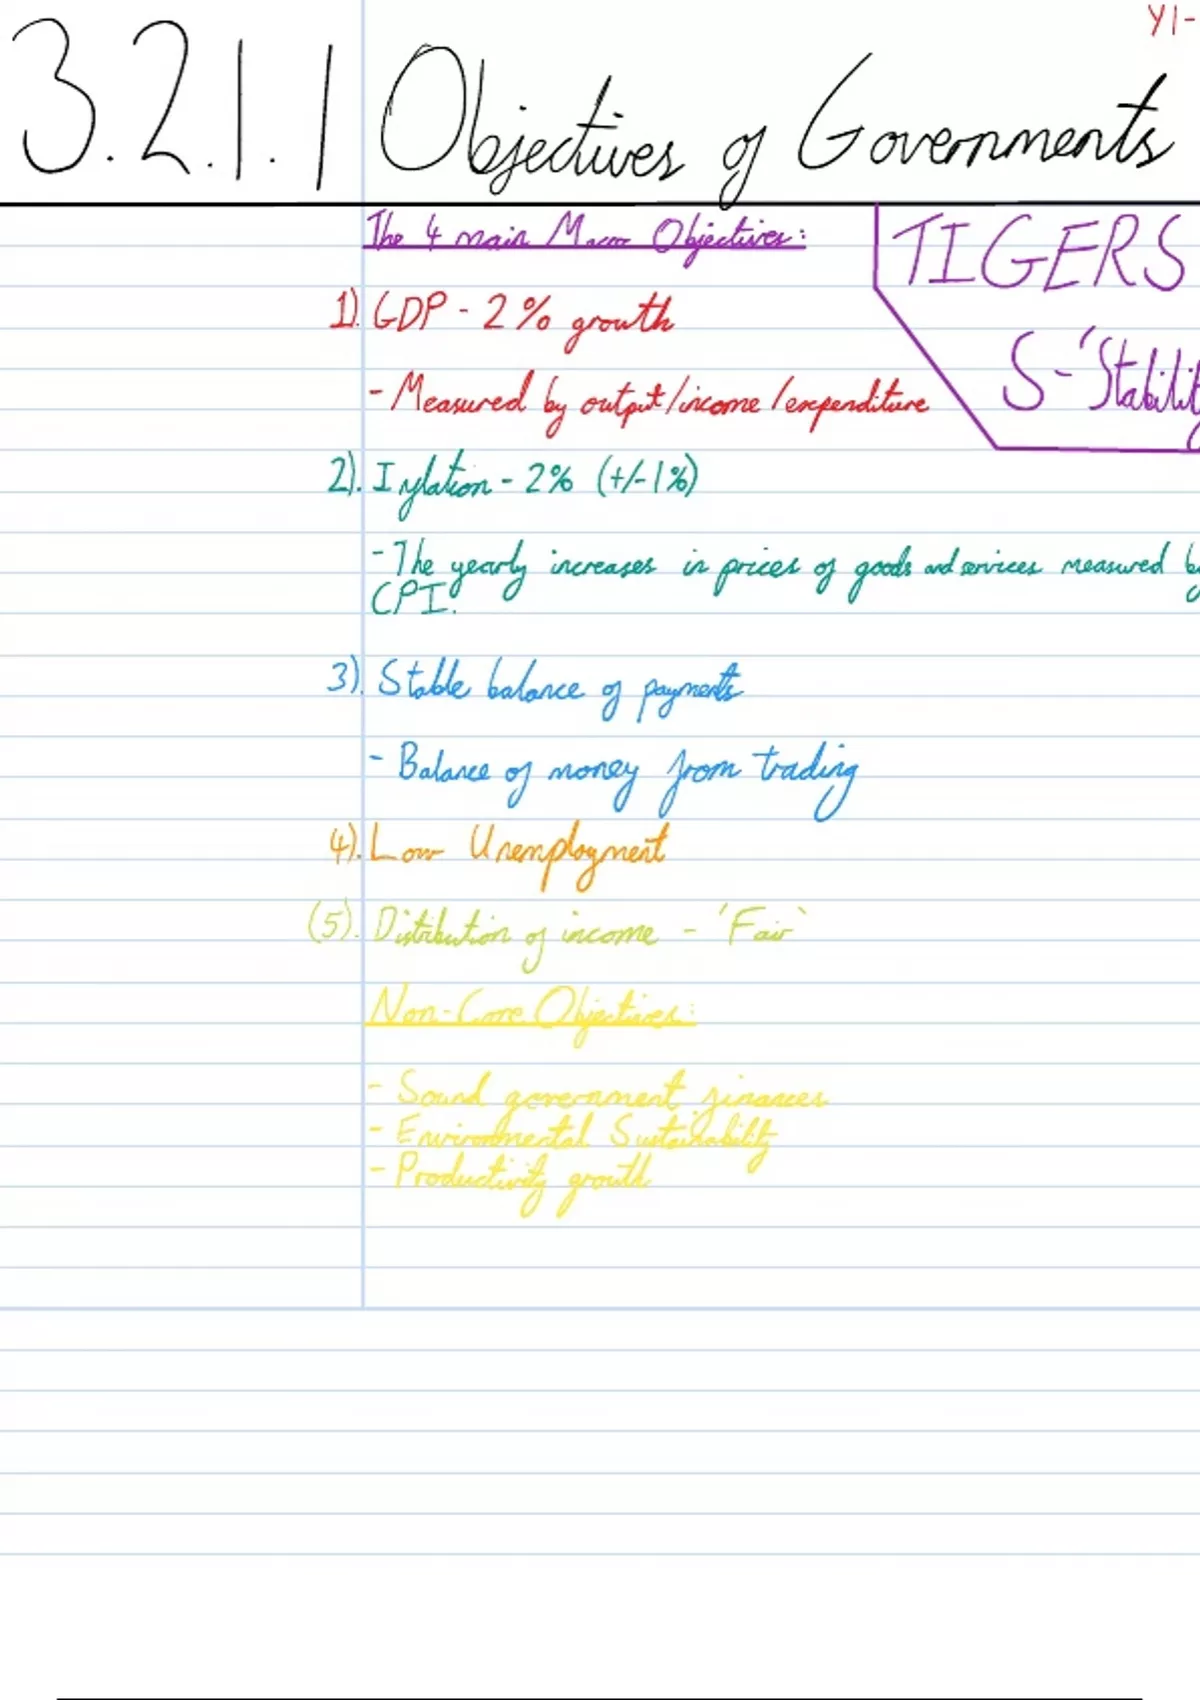 Y1-
3.2.1.1 Objectives of Governments
The 4 main Macro Objectives:
TIGERS
S-'Stability
1). GDP - 2% growth
- Measured by output/income/expenditure
2). Inflation - 2% (+/-1%)
- The yearly increases in prices of goods and services measured by
CPI.
3). Stable balance of payments
- Balance of money from trading
4). Low Unemployment
(5). Distribution of income - 'Fair'
Non-Core Objectives:
- Sound government finances
- Environmental Sustainability
- Productivity growth